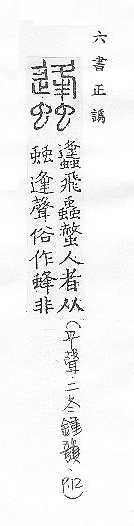 六書正譌
蠭飛蟲螫人者从
䖵逢聲俗作蜂非
(平聲·二冬鍾韻·P.12)